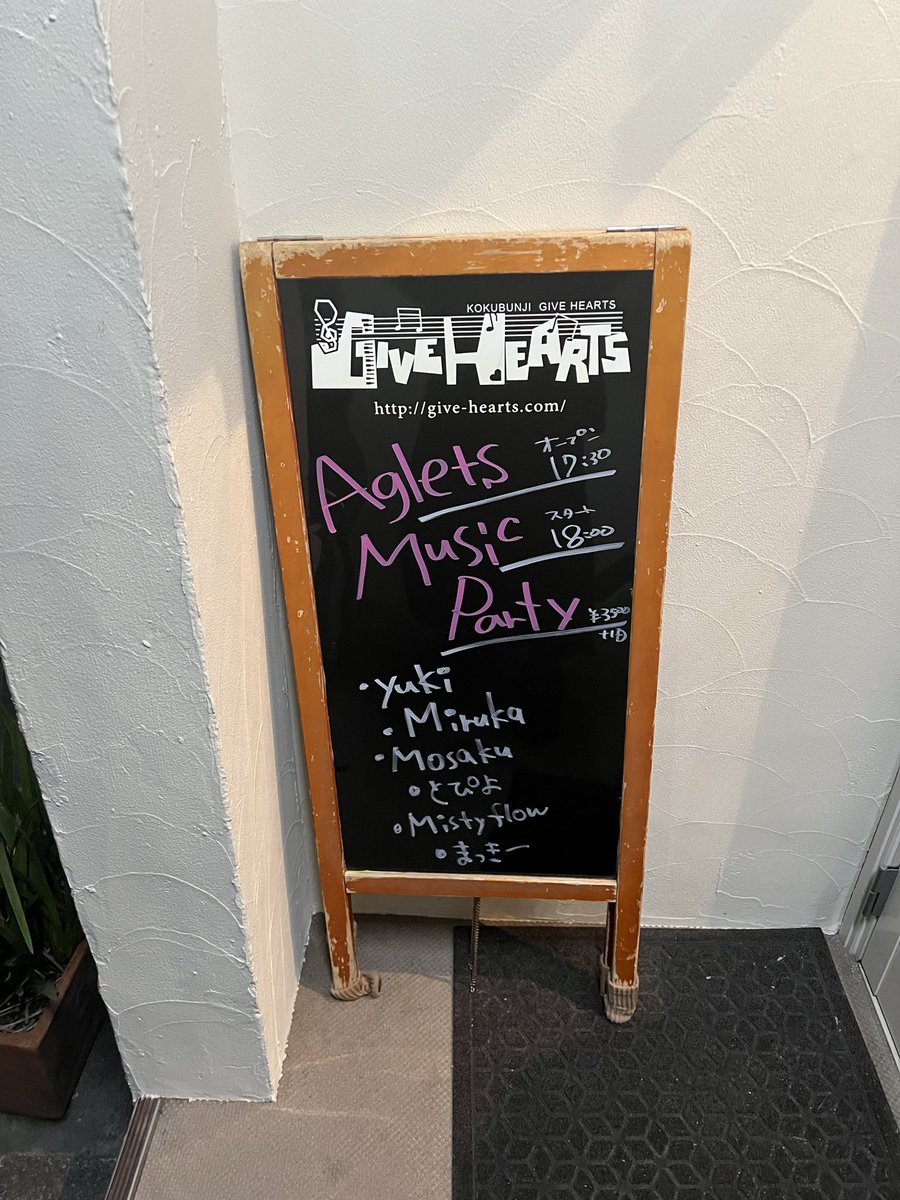 KOKUBUNJI GIVE HEARTS
GIVE HEARTS
http://give-hearts.com/
Aglets
オープン
17:30
Music
スタート
18:00
Party
¥3500
+1D
・yuki
・Miruka
・Mosaku
・とぴよ
・Mistyflow
・まっきー